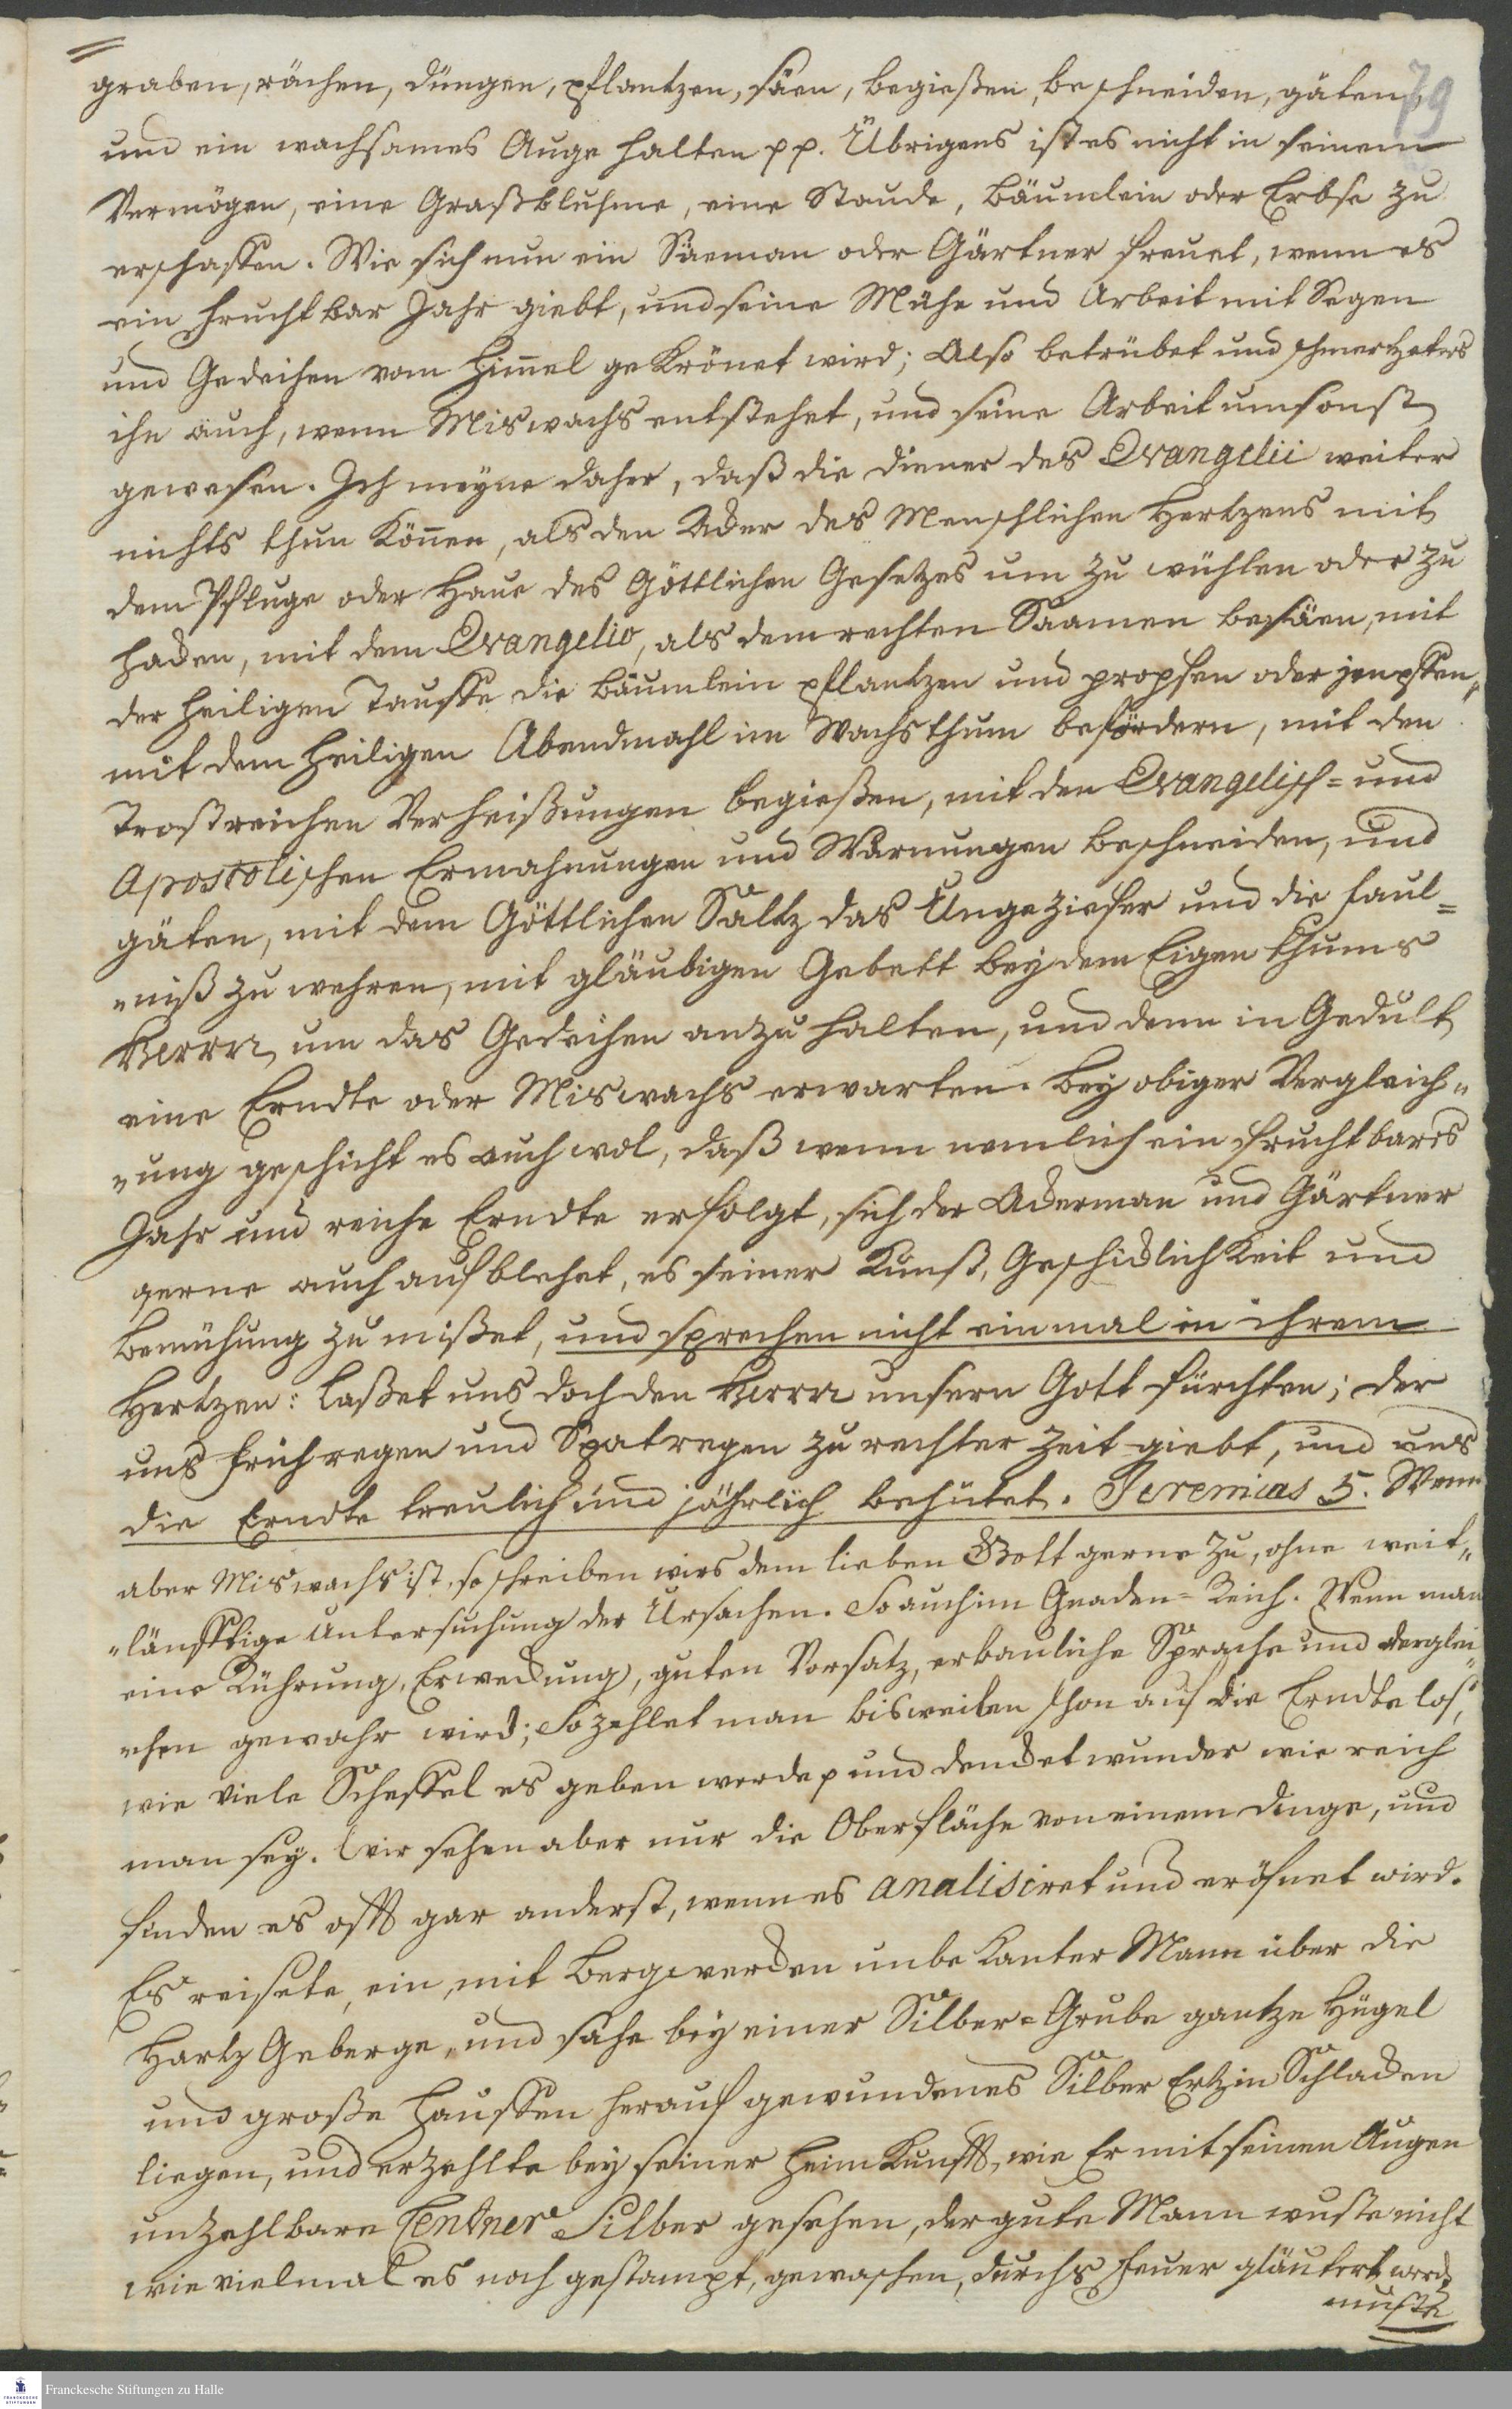 graben, rächen, düngen, pflantzen, säen, begießen, beschneiden, gäten,
79
und ein wachsames Auge halten pp. Übrigens ist es nicht in seinem
Vermögen, eine Graßbluhme, eine Staude, Bäumlein oder Erbse zu
erschaffen. Wie sich nun ein Säeman oder Gärtner freuet, wenn es
ein fruchtbar Jahr giebt, und seine Mühe und Arbeit mit Segen
und Gedeihen vom Himel gekrönet wird; Also betrübet und schmertzet es
ihn auch, wenn Miswachs entstehet, und seine Arbeit umsonst
gewesen. Ich meyne daher, daß die diener des Evangelii weiter
nichts thun könen, als den Acker des Menschlichen Hertzens mit
dem Pfluge oder Haue des Göttlichen Gesetzes um zu wühlen oder zu
hacken, mit dem Evangelio, als dem rechten Saamen besäen, mit
der heiligen Tauffe die Bäumlein pflantzen und propfen oder
mit dem heiligen Abendmahl im Wachsthum befördern, mit den
trostreichen Verheißungen begießen, mit den Evangelisch= und
Apostolischen Ermahnungen und Warnungen beschneiden, und
gäten, mit dem Göttlichen Saltz das Ungeziefer und die faul=
"niß zu wehren, mit gläubigen Gebett bey dem Eigenthums
Herrn um das Gedeihen anzuhalten, und denn in Gedult
eine Erndte oder Miswachs erwarten. Bey obiger Vergleich"
"ung geschicht es auch wol, daß wenn nemlich ein fruchtbares
Jahr und reiche Erndte erfolgt, sich der Ackerman und Gärtner
gerne auch aufblehet, es seiner Kunst, Geschicklichkeit und
Bemühung zu mißet, und sprechen nicht einmal in ihrem
Hertzen: Laßet uns doch den Herrn unsern Gott fürchten; der
uns frühregen und Spatregen zu rechter Zeit giebt, und uns
die Erndte treulich und jährlich behütet. Jeremias 5. Wenn
aber Miswachs ist, so schreiben wirs dem lieben Gott gerne zu, ohne weit"
"läufftige Untersuchung der Ursachen. So auch im Gnaden=Reich. Wenn man
eine Rührung, Erweckung, guten Vorsatz, erbauliche Sprache und derglei"
"chen gewahr wird; So zehlet man bisweilen schon auf die Erndte los,
wie viele Scheffel es geben werde p und dencket wunder wie reich
man sey. Wir sehen aber nur die Oberfläche von einem dinge, und
finden es offt gar anderst, wenn es analisiret und eröfnet wird.
Es reisete, ein, mit Bergwercken unbekanter Mann über die
Hartz Geberge, und sahe bey einer Silber=Grube gantze Hügel
und große Hauffen herauf gewundenes Silber Ertz in Schlacken
liegen, und erzehlte bey seiner Heimkunfft, wie Er mit seinen Augen
unzehlbare Centner Silber gesehen, der gute Mann wuste nicht
wie vielmal es noch gestampt, gewaschen, durchs Feuer gläutert werd
muste
Franckesche Stiftungen zu Halle